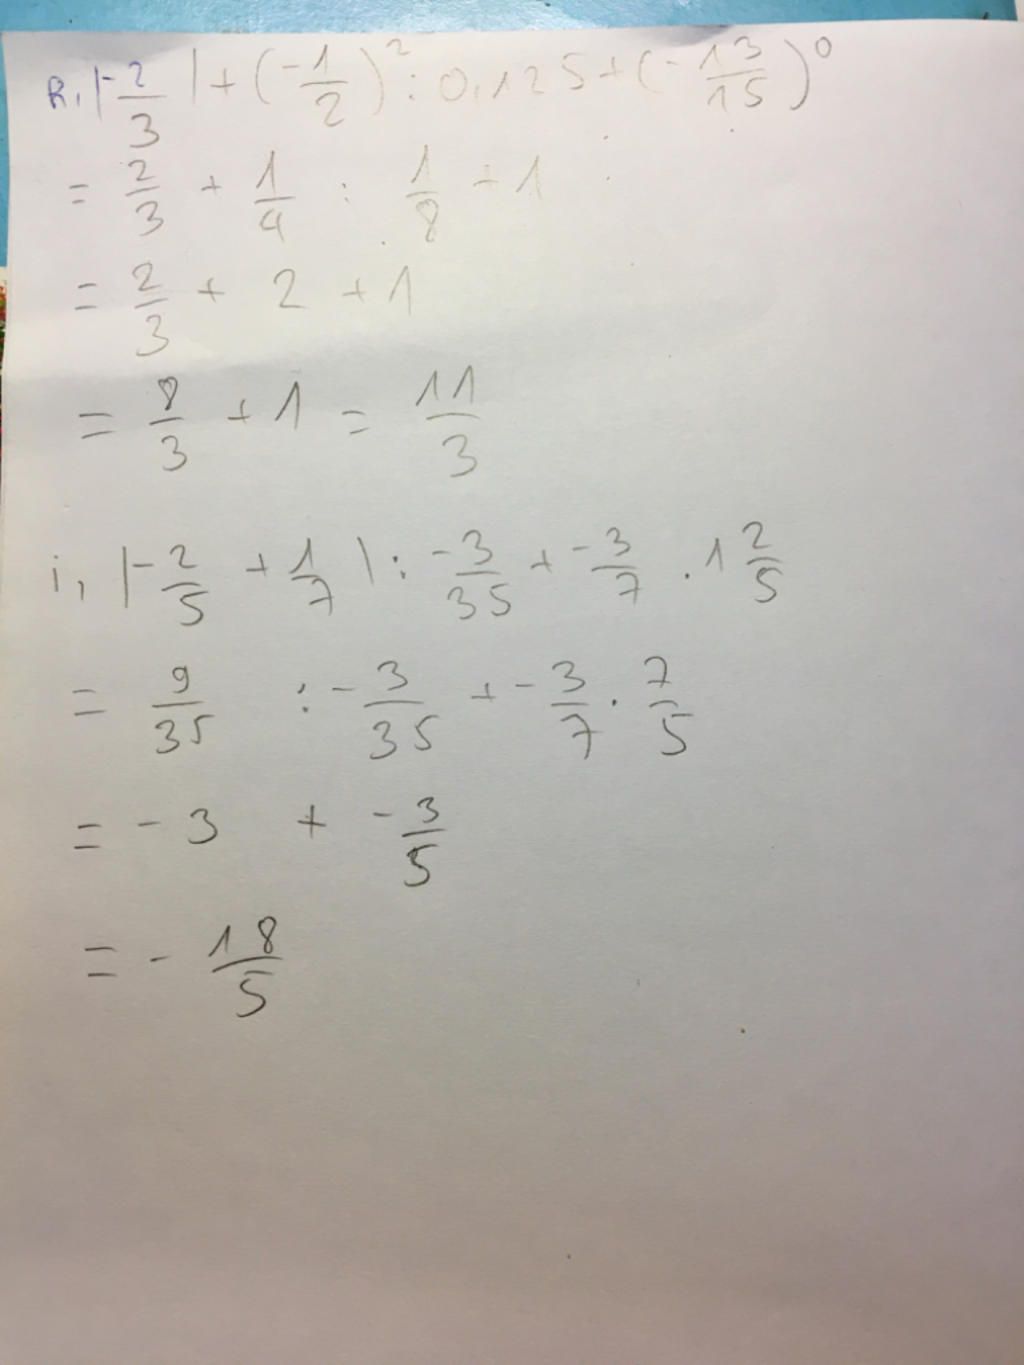 R, |-2/3| + (-1/2)² : 0,125 + (-13/15)⁰
= 2/3 + 1/4 : 1/8 + 1
= 2/3 + 2 + 1
= 8/3 + 1 = 11/3
i, |-2/5 + 1/7| : -3/35 + -3/7 . 1 2/5
= 9/35 : -3/35 + -3/7 . 7/5
= -3 + -3/5
= -18/5